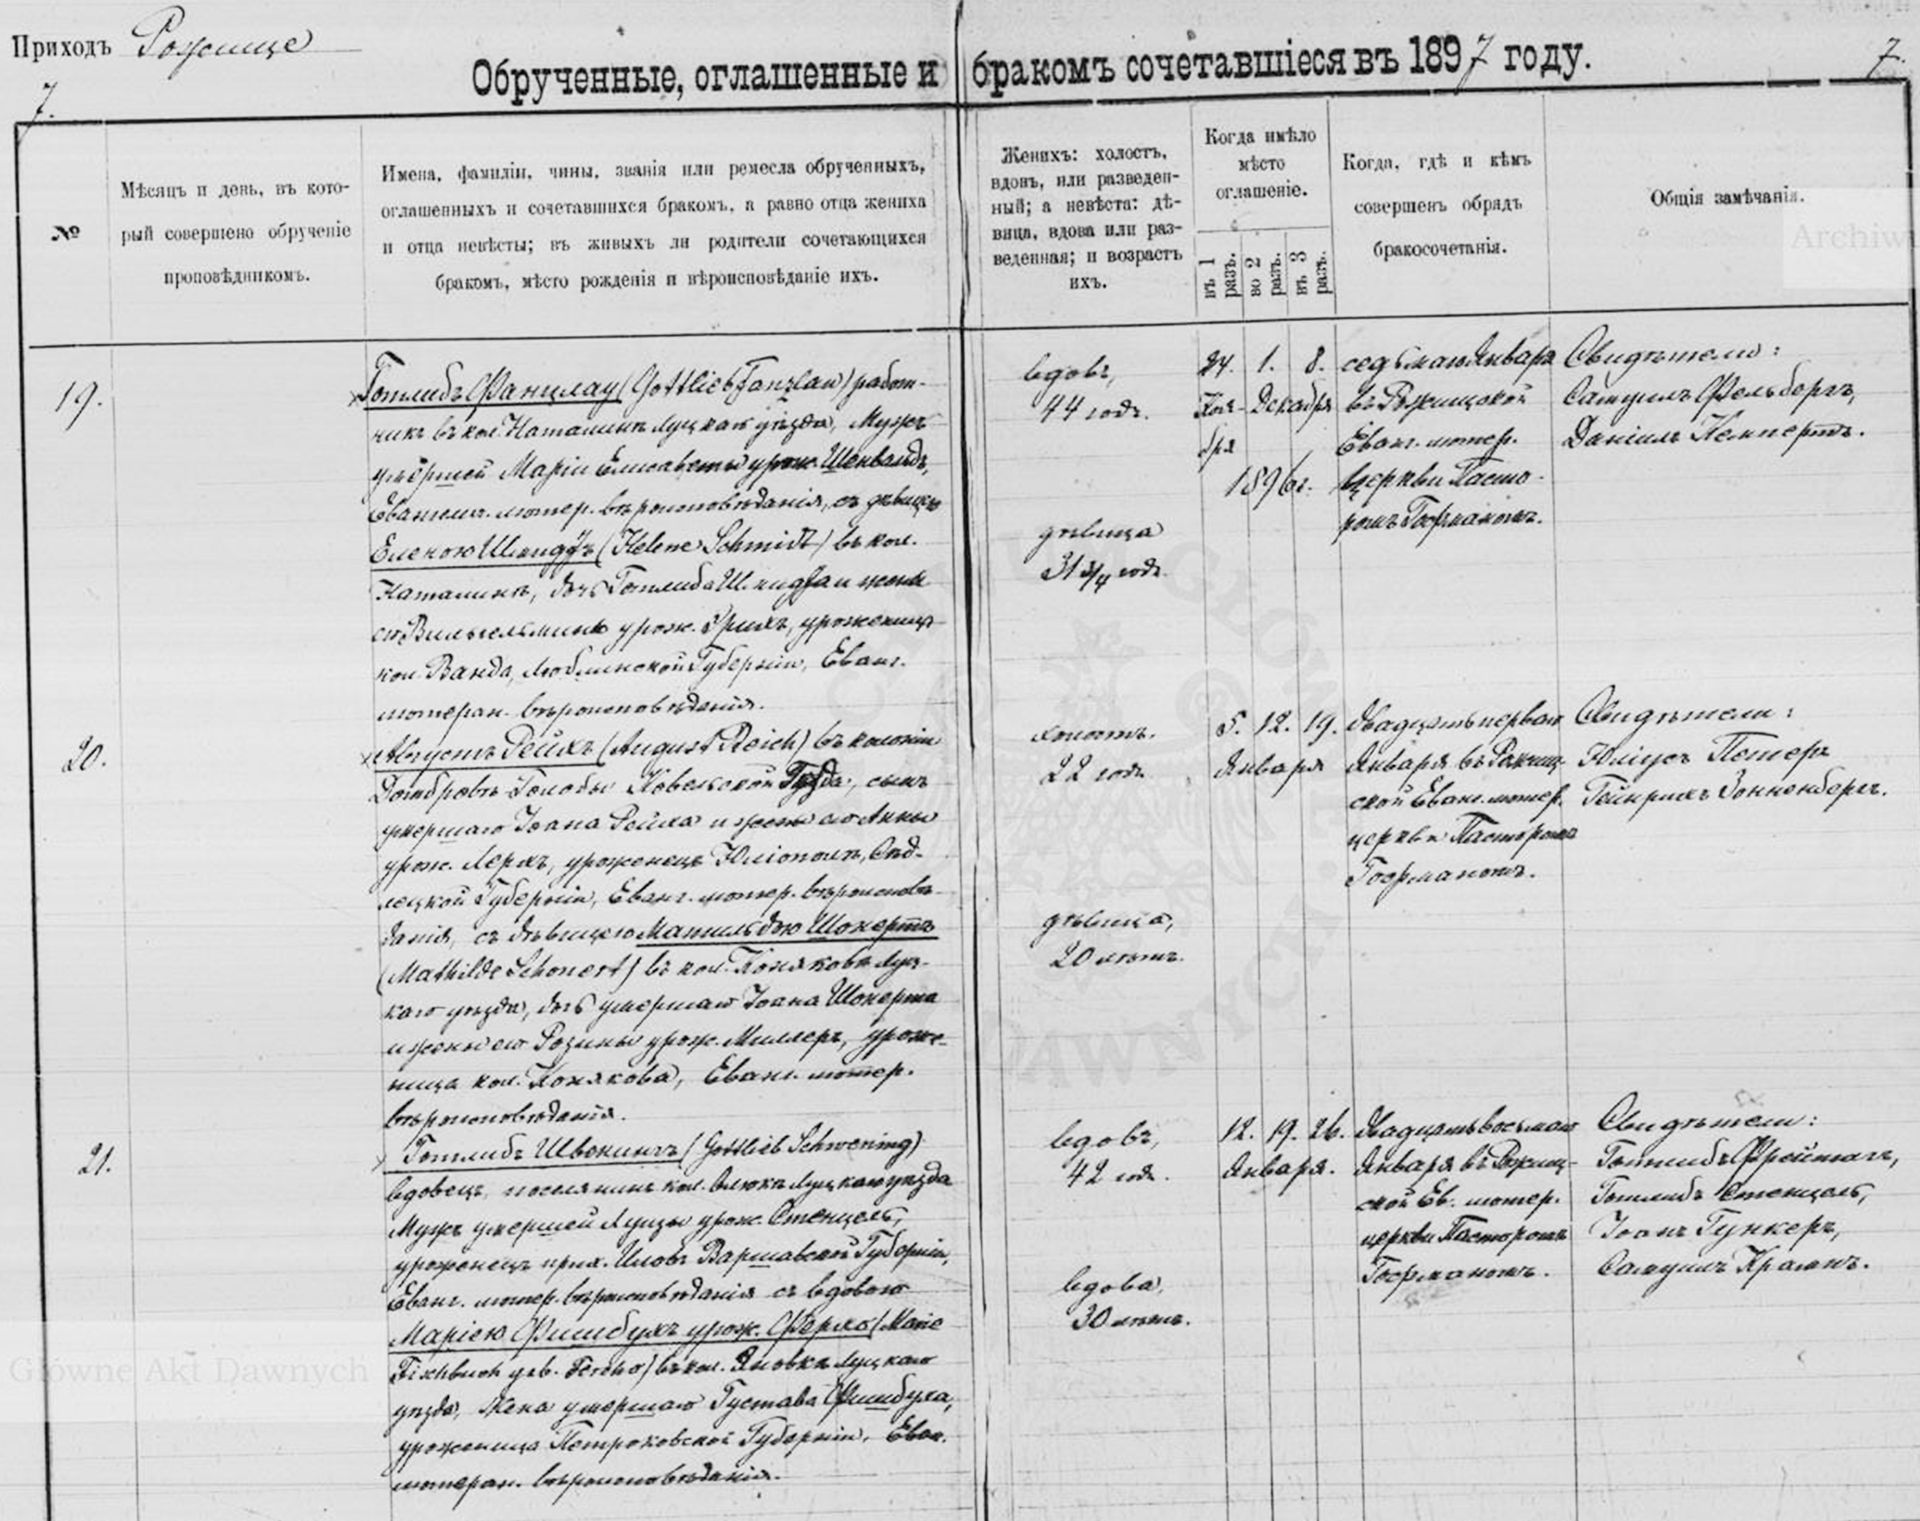 Приходъ Рожище
Обрученные, оглашенные и бракомъ сочетавшіеся въ 1897 году.
7.
7.
№
Мѣсяцъ и день, въ кото-
рый совершено обрученіе
проповѣдникомъ.
Имена, фамиліи, чины, званія или ремесла обрученныхъ,
оглашенныхъ и сочетавшихся бракомъ, а равно отца жениха
и отца невѣсты; въ живыхъ ли родители сочетающихся
бракомъ, мѣсто рожденія и вѣроисповѣданіе ихъ.
Женихъ: холостъ,
вдовъ, или разведен-
ный; а невѣста: дѣ-
вица, вдова или раз-
веденная; и возрастъ
ихъ.
Когда имѣло
мѣсто
оглашеніе.
въ 1 разъ.
во 2 разъ.
въ 3 разъ.
Когда, гдѣ и кѣмъ
совершенъ обрядъ
бракосочетанія.
Общія замѣчанія.
Archiwu
19.
Готлибъ Фанцлау (Gottlieb Fanzlau) работ-
никъ въ кол. Наталинъ Луцкаго уѣзда, Мужъ
умершей Маріи Елисаветы урож. Шенвальдъ,
Евангел. лютер. вѣроисповѣданія, съ дѣвицею
Еленою Шмидтъ (Helene Schmidt) въ кол.
Наталинъ, дочь Готлиба Шмидта и жены
его Вильгельмины урож. уроженица
кол. Ванда, Люблинской Губерніи, Еванг.
лютеран. вѣроисповѣданія.
вдовъ,
44 годъ.
дѣвица
31 3/4 годъ.
24. 1. 8.
Ноя- Декабря
бря
1896 г.
седьмаго Января
въ Рожищской
Еванг. лютер.
церкви Пасто-
ромъ Гофманомъ.
Свидѣтели:
Самуилъ Фельбергъ,
Даніилъ Немпертъ.
20.
Августъ Рейхъ (August Reich) въ колоніи
Домброва-Голобы Ковельской уѣзда, сынъ
умершаго Іоана Рейха и жены его Анны
урож. Лерхъ, уроженецъ Юліополь, Сѣд-
лецкой Губерніи, Еванг. лютер. вѣроисповѣ-
данія, съ дѣвицею Матильдою Шонертъ
(Mathilde Schonert) въ кол. Конякова Луц-
каго уѣзда, дочь умершаго Іоана Шонерта
и жены его Розины урож. Миллеръ, уроже-
ница кол. Конякова, Еванг. лютер.
вѣроисповѣданія.
холостъ.
22 годъ
дѣвица,
20 лѣтъ.
5. 12. 19.
Января
двадцать перваго
Января въ Рожищ-
ской Еванг. лютер.
церкви Пасторомъ
Гофманомъ.
Свидѣтели:
Юліусъ Петеръ
Гейнрихъ Зонненбергъ.
21.
Готлибъ Швенингъ (Gottlieb Schwening)
вдовецъ, поселянинъ кол. Олюка Луцкаго уѣзда
Мужъ умершей Луизы урож. Стенцель,
уроженецъ прих. Иловъ Варшавской Губерніи,
Еванг. лютер. вѣроисповѣданія съ вдовою
Маріею Фишбухъ урож. Ферхо (Marie
Fischbuch geb. Fercho) въ кол. Яновка Луцкаго
уѣзда, Жена умершаго Густава Фишбуха,
уроженица Петроковской Губерніи, Еван.
лютеран. вѣроисповѣданія.
вдовъ,
42 годъ.
вдова,
30 лѣтъ.
12. 19. 26.
Января.
двадцать восьмаго
Января въ Рожищ-
ской Ев. лютер.
церкви Пасторомъ
Гофманомъ.
Свидѣтели:
Готлибъ Фрейтагъ,
Готлибъ Стенцель,
Іоанъ Гункеръ,
Самуилъ Крамъ.
Główne Akt Dawnych